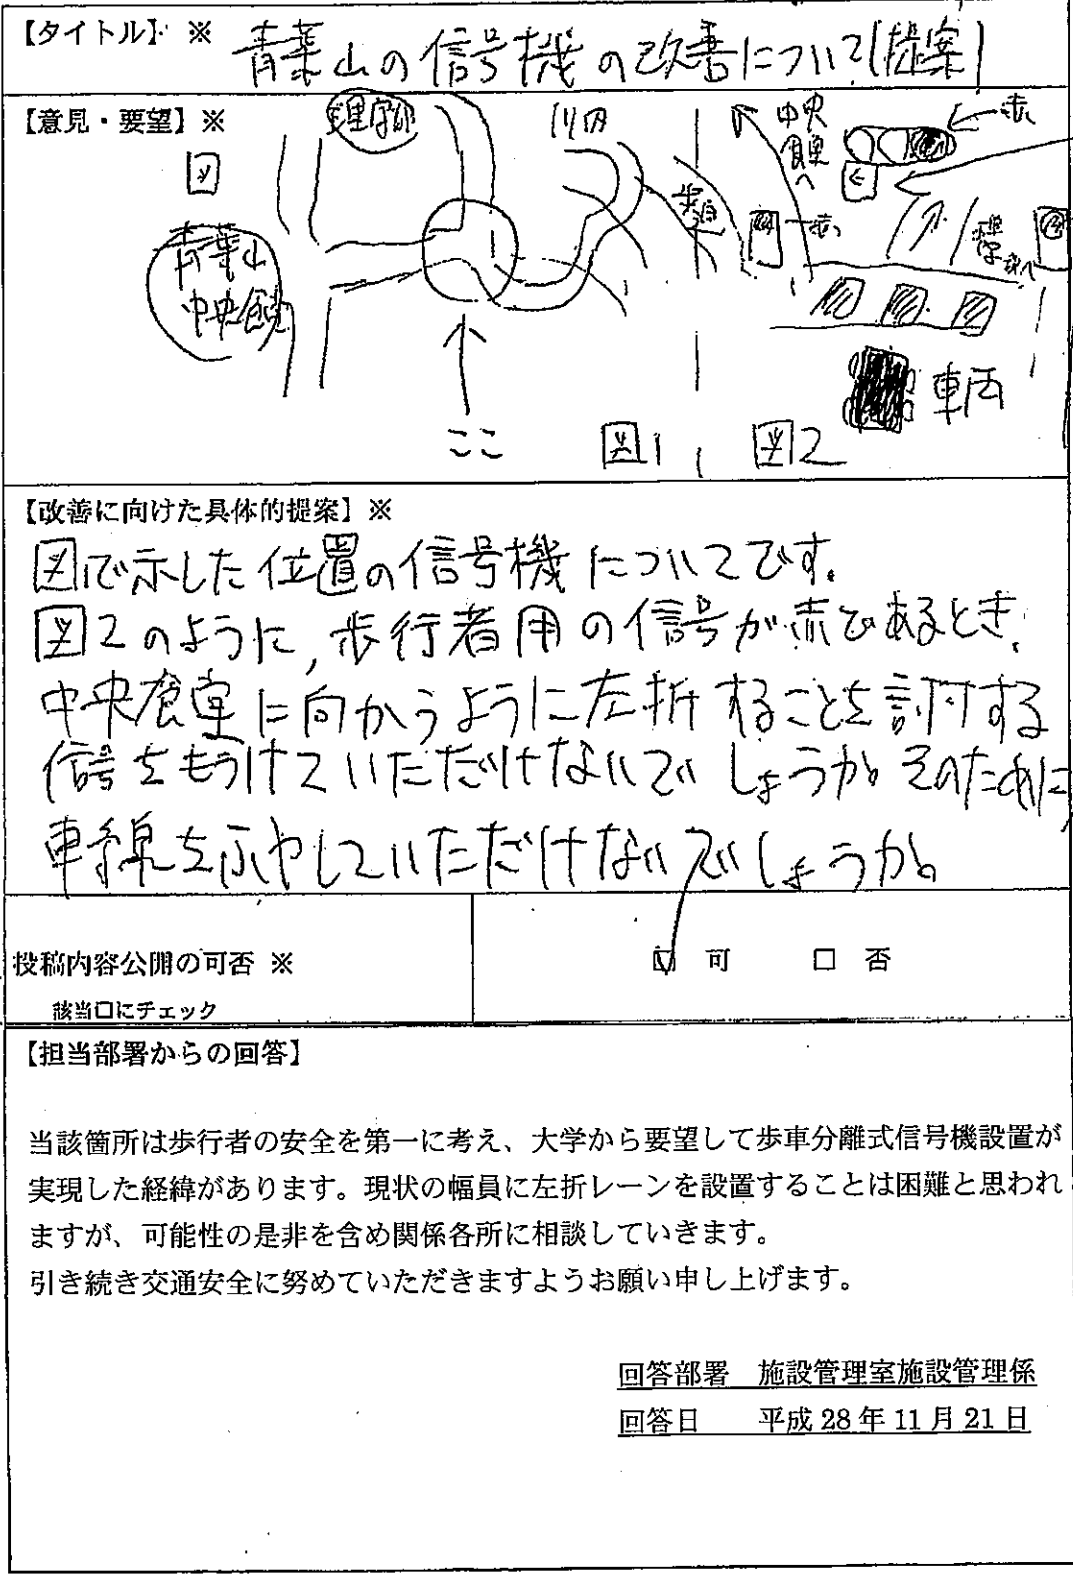 【タイトル】 ※ 青葉山の信号機の改善について(提案)
【意見・要望】※
図
理学部
川内
青葉山
中央食堂
ここ
図1
歩道
中央
食堂
へ
赤
赤
理学部へ
車両
図2
【改善に向けた具体的提案】※
図で示した位置の信号機についてです。
図2のように,歩行者用の信号が赤であるとき,
中央食堂に向かうように左折することを許可する
信号をもうけていただけないでしょうか。そのために,
車線をふやしていただけないでしょうか。
投稿内容公開の可否 ※
該当□にチェック
☑ 可 □ 否
【担当部署からの回答】
当該箇所は歩行者の安全を第一に考え、大学から要望して歩車分離式信号機設置が
実現した経緯があります。現状の幅員に左折レーンを設置することは困難と思われ
ますが、可能性の是非を含め関係各所に相談していきます。
引き続き交通安全に努めていただきますようお願い申し上げます。
回答部署 施設管理室施設管理係
回答日 平成 28 年 11 月 21 日